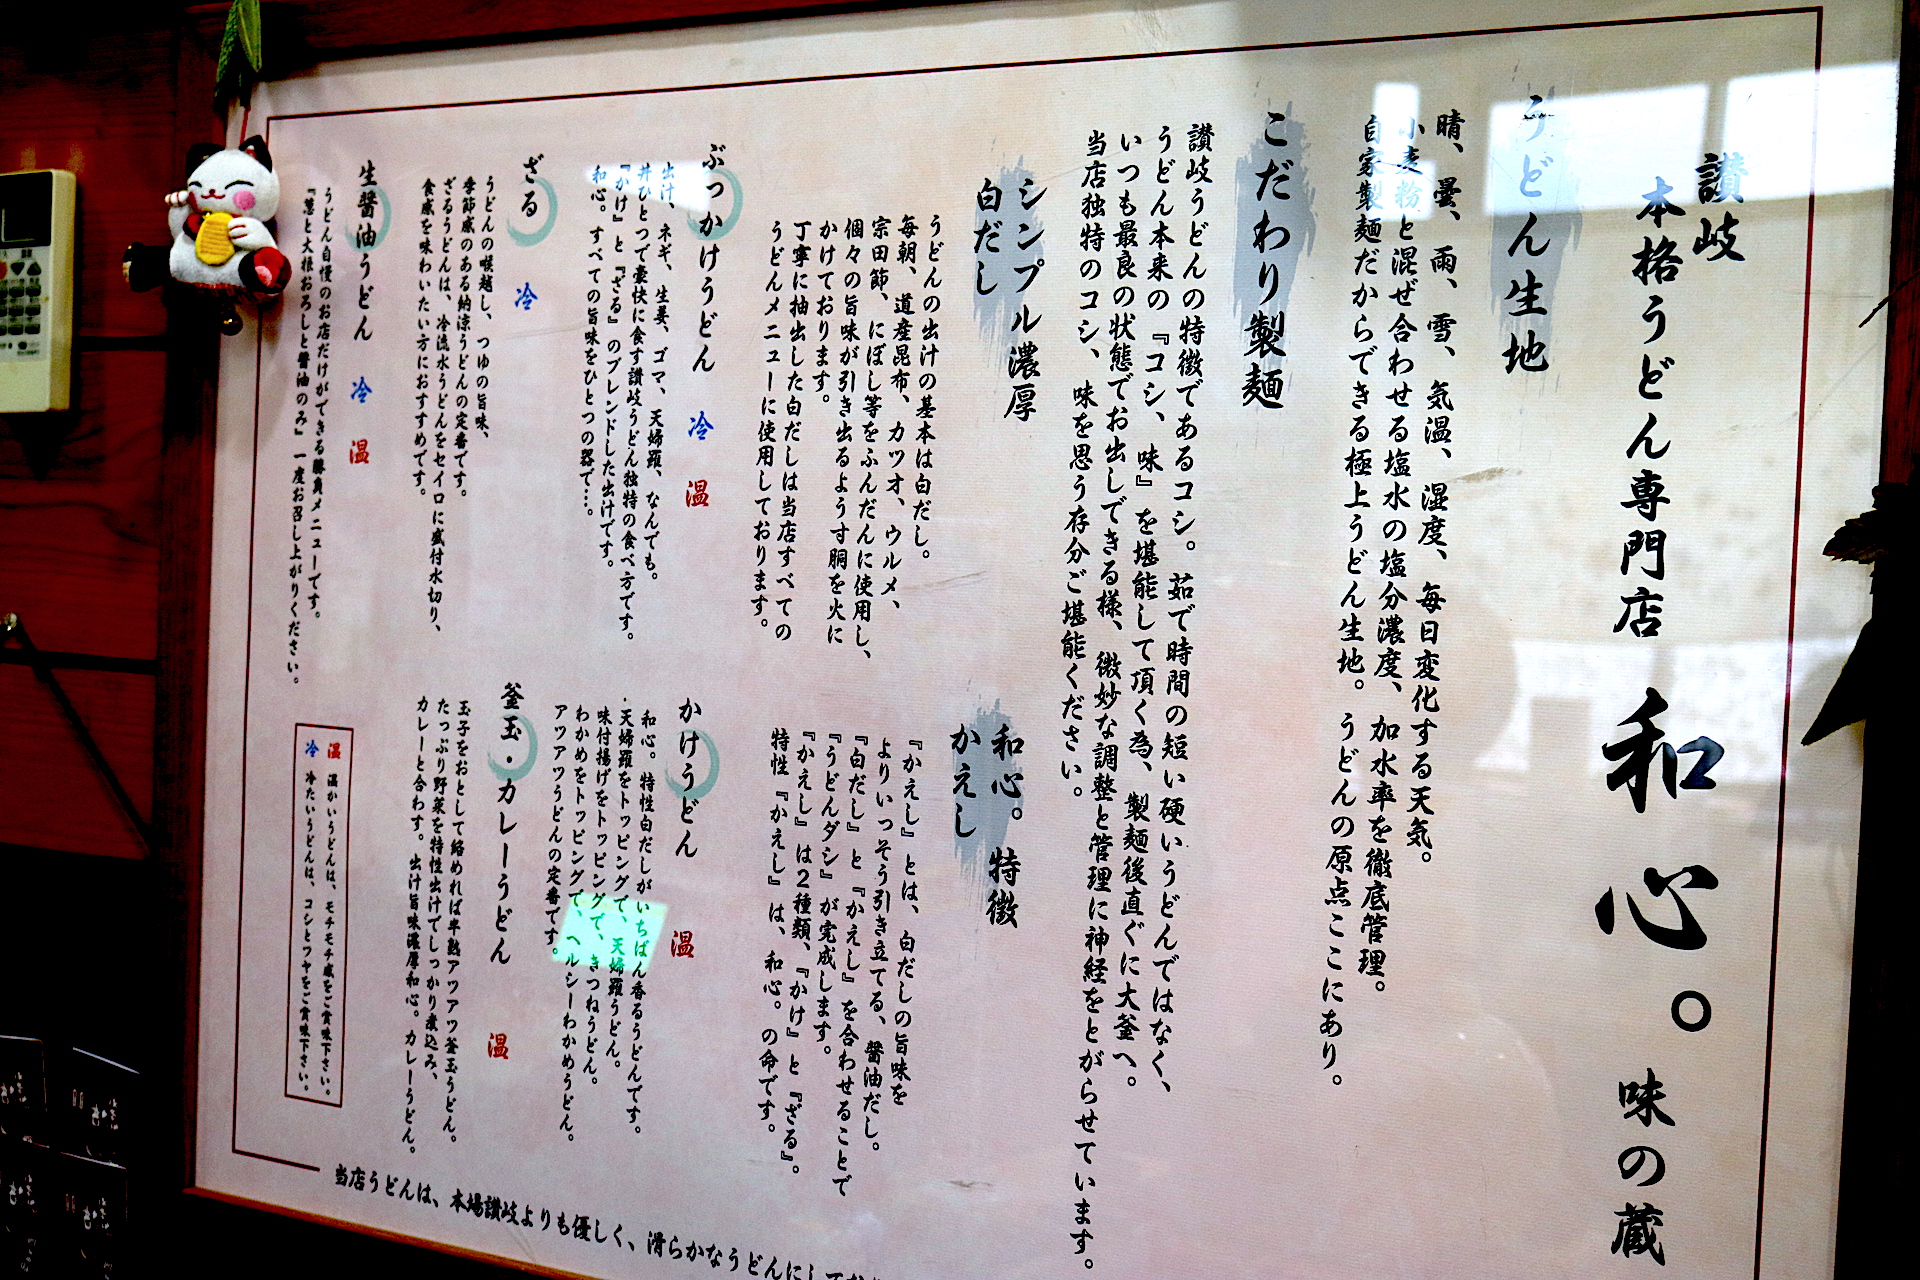 讃岐
本格うどん専門店 和心。味の蔵
うどん生地
晴、曇、雨、雪、気温、湿度、毎日変化する天気。
小麦粉と混ぜ合わせる塩水の塩分濃度、加水率を徹底管理。
自家製麺だからできる極上うどん生地。うどんの原点ここにあり。
こだわり製麺
讃岐うどんの特徴であるコシ。茹で時間の短い硬いうどんではなく、
うどん本来の『コシ、味』を堪能して頂く為、製麺後直ぐに大釜へ。
いつも最良の状態でお出しできる様、微妙な調整と管理に神経をとがらせています。
当店独特のコシ、味を思う存分ご堪能ください。
シンプル濃厚
白だし
うどんの出汁の基本は白だし。
毎朝、道産昆布、カツオ、ウルメ、
宗田節、にぼし等をふんだんに使用し、
個々の旨味が引き出るようす胴を火に
かけております。
丁寧に抽出した白だしは当店すべての
うどんメニューに使用しております。
和心。特徴
かえし
『かえし』とは、白だしの旨味を
よりいっそう引き立てる、醤油だし。
『白だし』と『かえし』を合わせることで
『うどんダシ』が完成します。
『かえし』は2種類、『かけ』と『ざる』。
特性『かえし』は、和心。の命です。
ぶっかけうどん 冷 温
出汁、ネギ、生姜、ゴマ、天婦羅、なんでも。
丼ひとつで豪快に食す讃岐うどん独特の食べ方です。
『かけ』と『ざる』のブレンドした出汁です。
和心。すべての旨味をひとつの器で…。
かけうどん 温
和心。特性白だしがいちばん香るうどんです。
・天婦羅をトッピングで、天婦羅うどん。
味付揚げをトッピングで、きつねうどん。
わかめをトッピングで、ヘルシーわかめうどん。
アツアツうどんの定番です。
ざる 冷
うどんの喉越し、つゆの旨味、
季節感のある納涼うどんの定番です。
ざるうどんは、冷流水うどんをセイロに盛付水切り、
食感を味わいたい方におすすめです。
釜玉・カレーうどん 温
玉子をおとして絡めれば半熟アツアツ釜玉うどん。
たっぷり野菜を特性出汁でしっかり煮込み、
カレーと合わす。出汁旨味濃厚和心。カレーうどん。
生醤油うどん 冷 温
うどん自慢のお店だけができる勝負メニューです。
『葱と大根おろしと醤油のみ』一度お召し上がりください。
温 温かいうどんは、モチモチ感をご賞味下さい。
冷 冷たいうどんは、コシとツヤをご賞味下さい。
当店うどんは、本場讃岐よりも優しく、滑らかなうどんにして